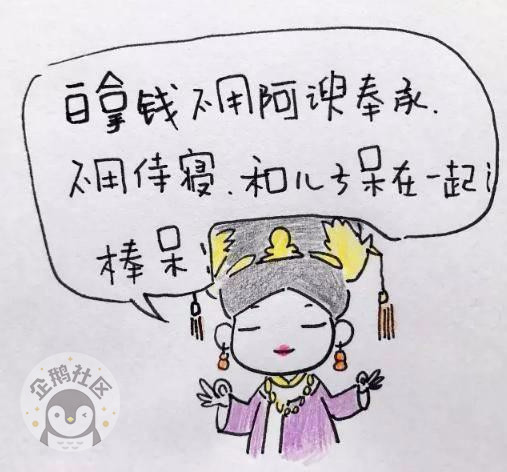 白拿钱不用阿谀奉承.
不用侍寝.和儿子呆在一起
棒呆
企鹅社区